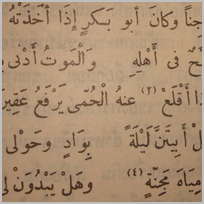 جنًا وكانَ أبو بَكرٍ إذَا أخَذَتْهُ
حٌ فى أَهْلِهِ وَالْمَوتُ أَدْنى
ذَا أَقْلَعَ (٢) عنهُ الْحُمَى يَرْفَعُ عَقِيرَ
لْ أَبِيتَنَّ لَيْلَةً بِوَادٍ وَحَوْلى
مِيَاهَ مَجِنَّةٍ (٤) وهَلْ يَبْدُوَنْ لِى